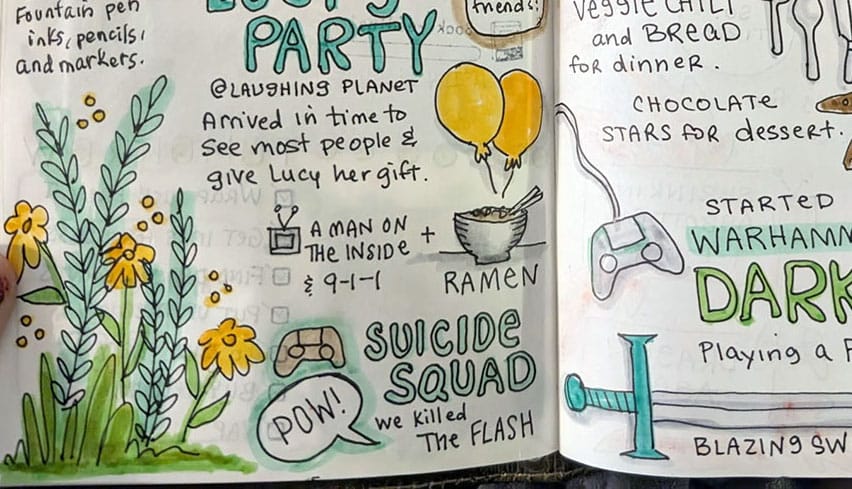 Fountain pen
inks, pencils,
and markers.
PARTY
@LAUGHING PLANET
Arrived in time to
see most people &
give Lucy her gift.
A MAN ON
THE INSIDE +
& 9-1-1
RAMEN
SUICIDE
SQUAD
POW!
we killed
The FLASH
friends!
veggie CHILI
and BREAD
for dinner.
CHOCOLATE
STARS FOR dessert.
STARTED
WARHAMM
DARK
Playing a
BLAZING SW